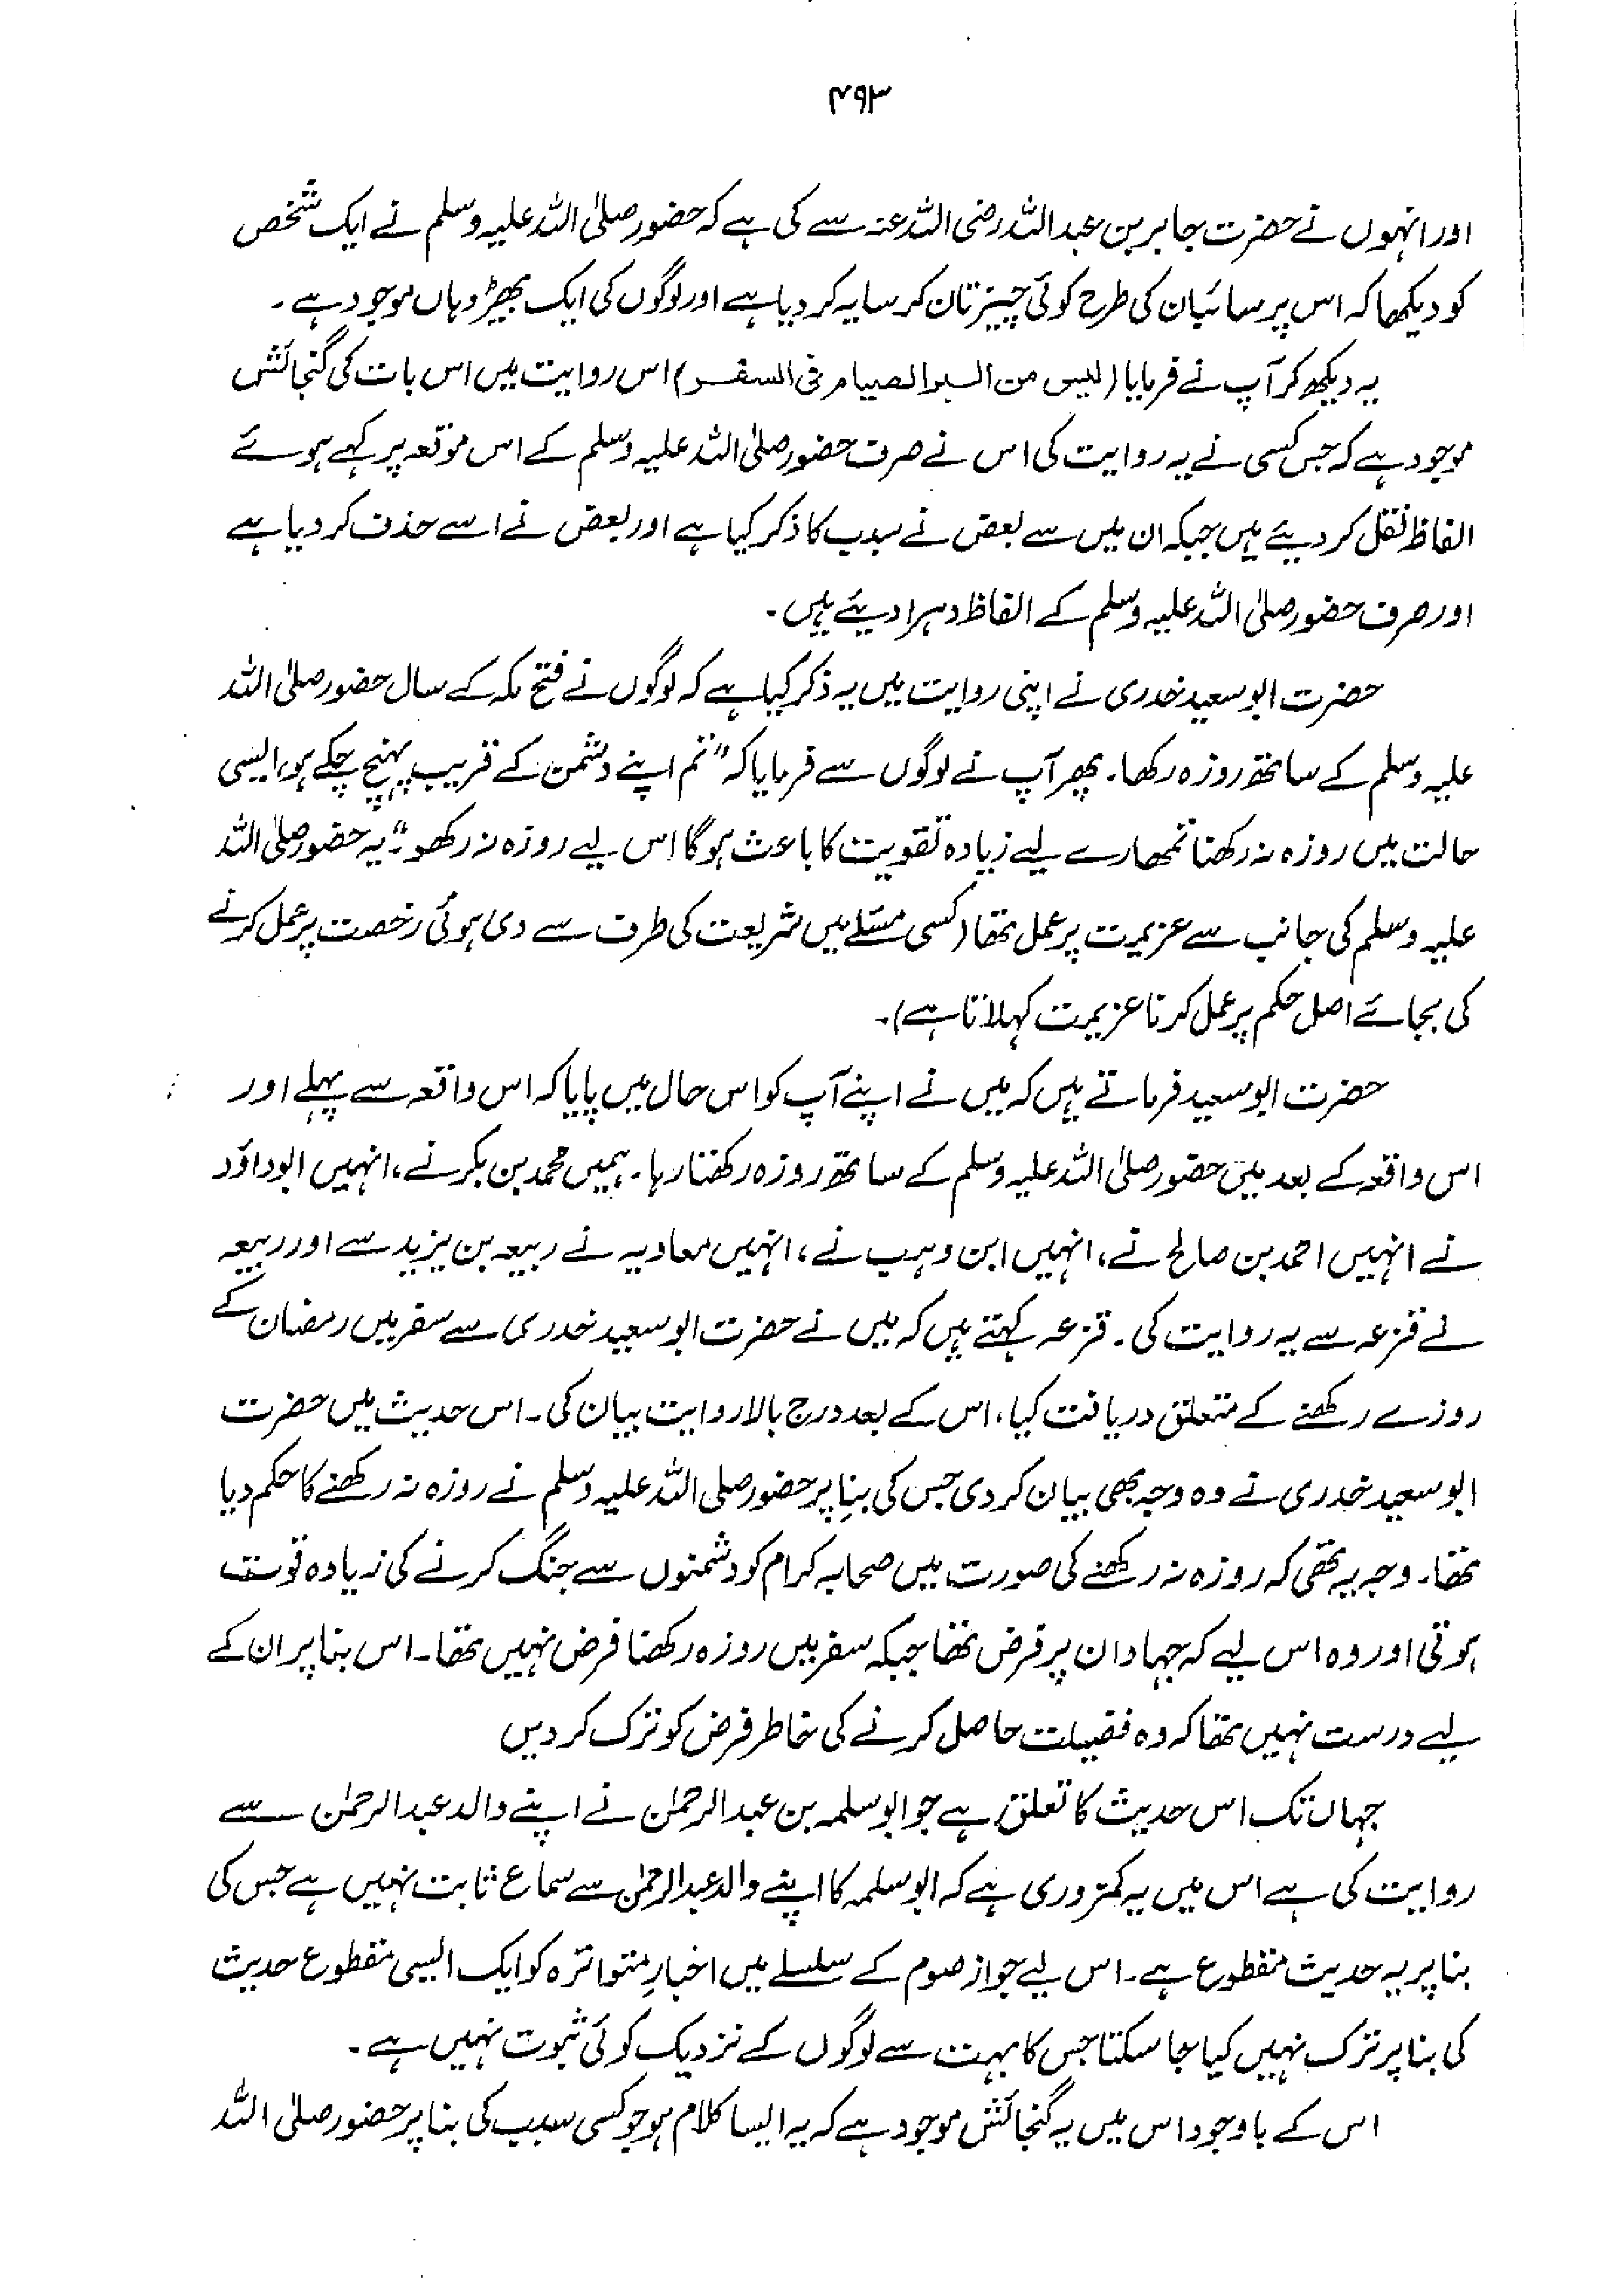 ۴۹۳
اور انہوں نے حضرت جابر بن عبد اللہ رضی اللہ عنہ سے کی ہے کہ حضور صلی اللہ علیہ وسلم نے ایک شخص
کو دیکھا کہ اس پر سائبان کی طرح کوئی چیز تان کر سایہ کر دیا ہے اور لوگوں کی ایک بھیڑ وہاں موجود ہے۔
یہ دیکھ کر آپ نے فرمایا (لیس من البر الصیام فی السفر) اس روایت میں اس بات کی گنجائش
موجود ہے کہ جس کسی نے یہ روایت کی اس نے صرف حضور صلی اللہ علیہ وسلم کے اس موقعہ پر کہے ہوئے
الفاظ نقل کر دیئے ہیں جبکہ ان میں سے بعض نے سبب کا ذکر کیا ہے اور بعض نے اسے حذف کر دیا ہے
اور صرف حضور صلی اللہ علیہ وسلم کے الفاظ دہرا دیئے ہیں۔
حضرت ابو سعید خدری نے اپنی روایت میں یہ ذکر کیا ہے کہ لوگوں نے فتح مکہ کے سال حضور صلی اللہ
علیہ وسلم کے ساتھ روزہ رکھا۔ پھر آپ نے لوگوں سے فرمایا کہ "تم اپنے دشمن کے قریب پہنچ چکے ہو، ایسی
حالت میں روزہ نہ رکھنا تمھارے لیے زیادہ تقویت کا باعث ہوگا اس لیے روزہ نہ رکھو" یہ حضور صلی اللہ
علیہ وسلم کی جانب سے عزیمت پر عمل تھا (کسی مسئلے میں شریعت کی طرف سے دی ہوئی رخصت پر عمل کرنے
کی بجائے اصل حکم پر عمل کرنا عزیمت کہلاتا ہے)۔
حضرت ابو سعید فرماتے ہیں کہ میں نے اپنے آپ کو اس حال میں پایا کہ اس واقعہ سے پہلے اور
اس واقعہ کے بعد میں حضور صلی اللہ علیہ وسلم کے ساتھ روزہ رکھتا رہا۔ ہمیں محمد بن بکر نے، انہیں ابوداؤد
نے انہیں احمد بن صالح نے، انہیں ابن وہب نے، انہیں معاویہ نے ربیعہ بن یزید سے اور ربیعہ
نے قزعہ سے یہ روایت کی۔ قزعہ کہتے ہیں کہ میں نے حضرت ابو سعید خدری سے سفر میں رمضان کے
روزے رکھنے کے متعلق دریافت کیا، اس کے بعد درج بالا روایت بیان کی۔ اس حدیث میں حضرت
ابو سعید خدری نے وہ وجہ بھی بیان کر دی جس کی بنا پر حضور صلی اللہ علیہ وسلم نے روزہ نہ رکھنے کا حکم دیا
تھا۔ وجہ یہ تھی کہ روزہ نہ رکھنے کی صورت میں صحابہ کرام کو دشمنوں سے جنگ کرنے کی زیادہ قوت
ہوتی اور وہ اس لیے کہ جہاد ان پر فرض تھا جبکہ سفر میں روزہ رکھنا فرض نہیں تھا۔ اس بنا پر ان کے
لیے درست نہیں تھا کہ وہ فضیلت حاصل کرنے کی خاطر فرض کو ترک کر دیں
جہاں تک اس حدیث کا تعلق ہے جو ابو سلمہ بن عبد الرحمٰن نے اپنے والد عبد الرحمٰن سے
روایت کی ہے اس میں یہ کمزوری ہے کہ ابو سلمہ کا اپنے والد عبدالرحمٰن سے سماع ثابت نہیں ہے جس کی
بنا پر یہ حدیث مقطوع ہے۔ اس لیے جواز صوم کے سلسلے میں اخبارِ متواترہ کو ایک ایسی مقطوع حدیث
کی بنا پر ترک نہیں کیا جا سکتا جس کا بہت سے لوگوں کے نزدیک کوئی ثبوت نہیں ہے۔
اس کے باوجود اس میں یہ گنجائش موجود ہے کہ یہ ایسا کلام ہو جو کسی سبب کی بنا پر حضور صلی اللہ